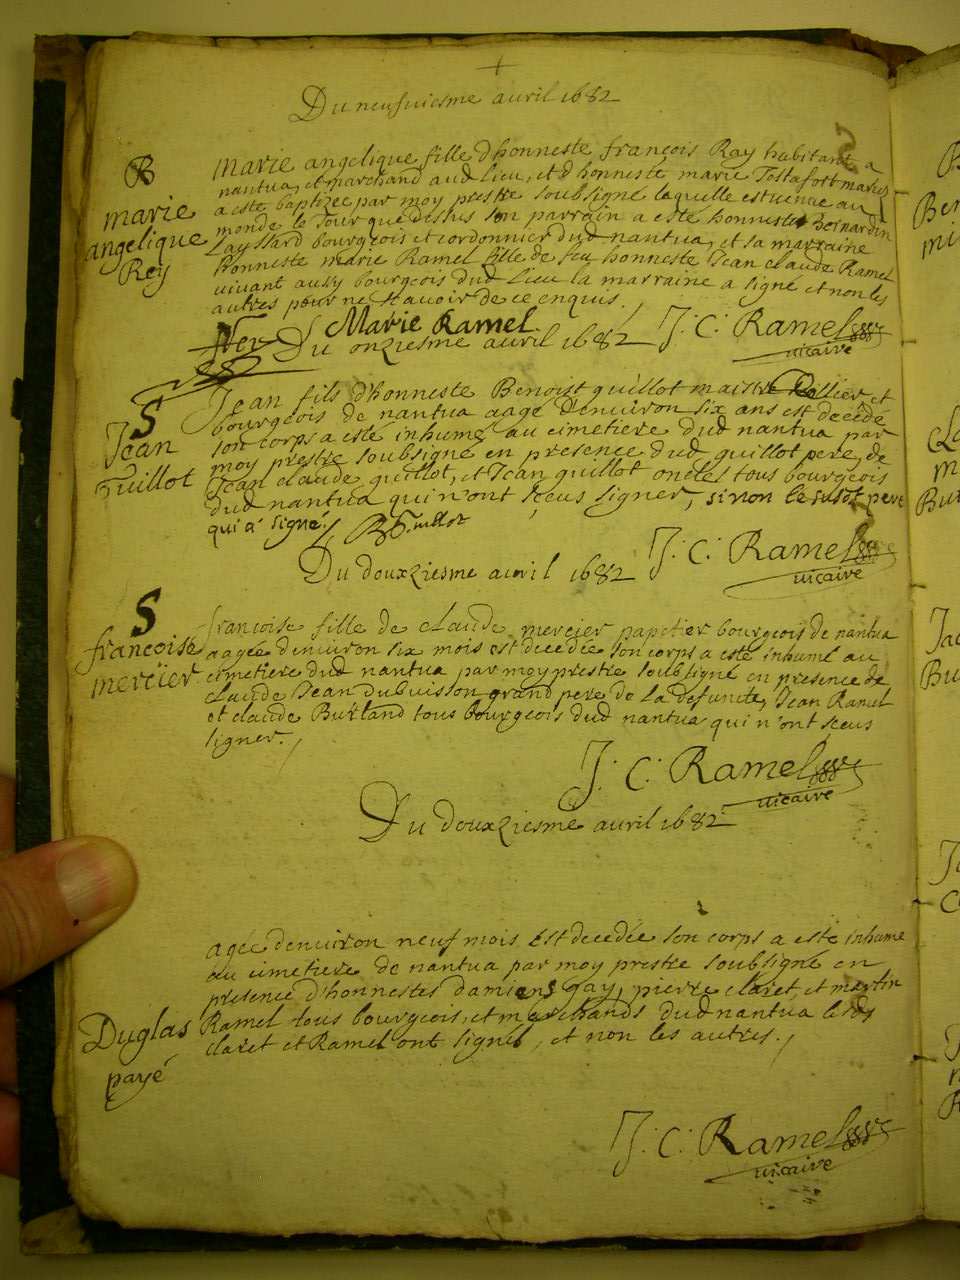 Du neufviesme avril 1682
B
marie
angelique
Rey
Marie angelique fille d'honneste françois Ray habitant a
nantua, et marchand aud lieu, et d'honneste marie Tostafort maries
a este baptizee par moy prestre soubsigné laquelle est venue au
monde le Jour que dessus son parrain a este honneste Bernardin
Layssard bourgeois et cordonnier dud nantua, et sa marraine
honneste marie Ramel fille de feu honneste Jean claude Ramel
vivant aussy bourgeois dud lieu la marraine a signé et non les
autres pour ne scavoir de ce enquis.
Marie Ramel.
J. C. Ramel
vicaire
Du onziesme avril 1682
S
Jean
Guillot
Jean fils d'honneste Benoist guillot maistre et
bourgeois de nantua aagé d'environ six ans est decedé
son corps a esté inhumé au cimetiere dud nantua par
moy prestre soubsigné en presence dud guillot pere, de
Jean claude guillot, et Jean guillot oncles tous bourgeois
dud nantua qui n'ont sceus signer, sinon le susdt pere
qui a signé. B Guillot
J. C. Ramel
vicaire
Du douxziesme avril 1682
S
francoise
mercier
francoise fille de claude mercier papetier bourgeois de nantua
aagée denviron six mois est decedée son corps a este inhumé au
cimetiere dud nantua par moy prestre soubsigné en presence de
claude Jean dubuisson grand pere de la defuncte, Jean Ramel
et claude Burland tous bourgeois dud nantua qui n'ont sceus
signer.
J. C. Ramel
vicaire
Du douxziesme avril 1682
Duglas
payé
agée denviron neuf mois est decedée son corps a este inhume
au cimetiere de nantua par moy prestre soubsigné en
presence d'honnestes damiens gay, pierre claret, et martin
Ramel tous bourgeois, et marchands dud nantua lesds
claret et Ramel ont signés, et non les autres.
J. C. Ramel
vicaire